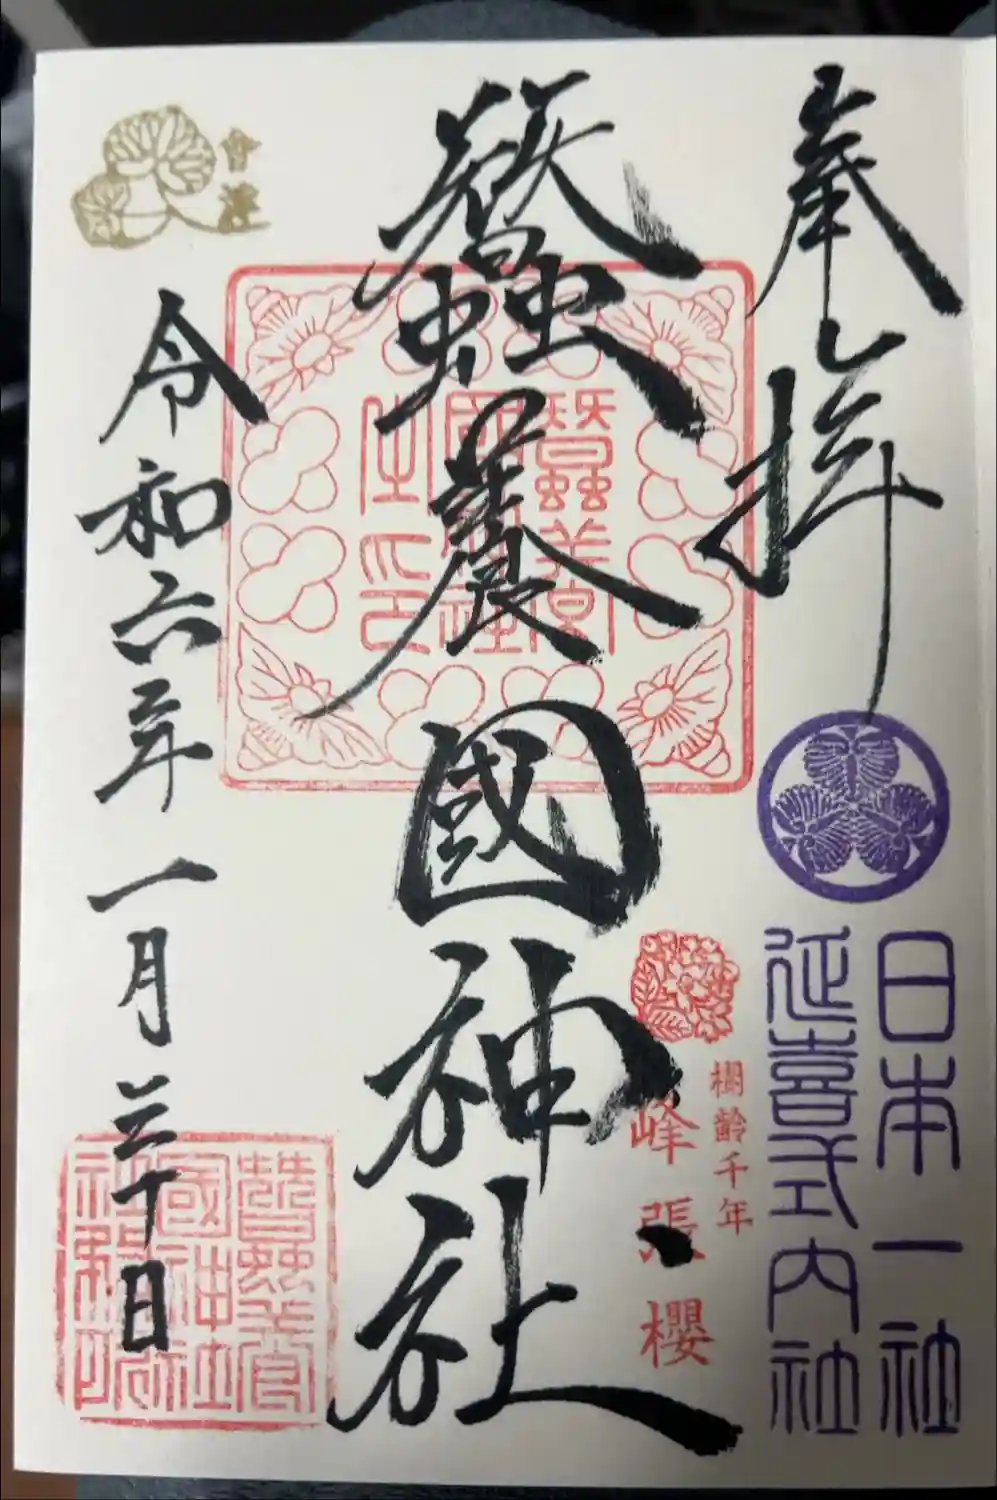 奉拝
日本一社
延喜式内社
樹齡千年
峰張櫻
蠶養國神社
蠶養
國神社
之印
會津
令和六年一月三十日
蠶養
國神社
社務所